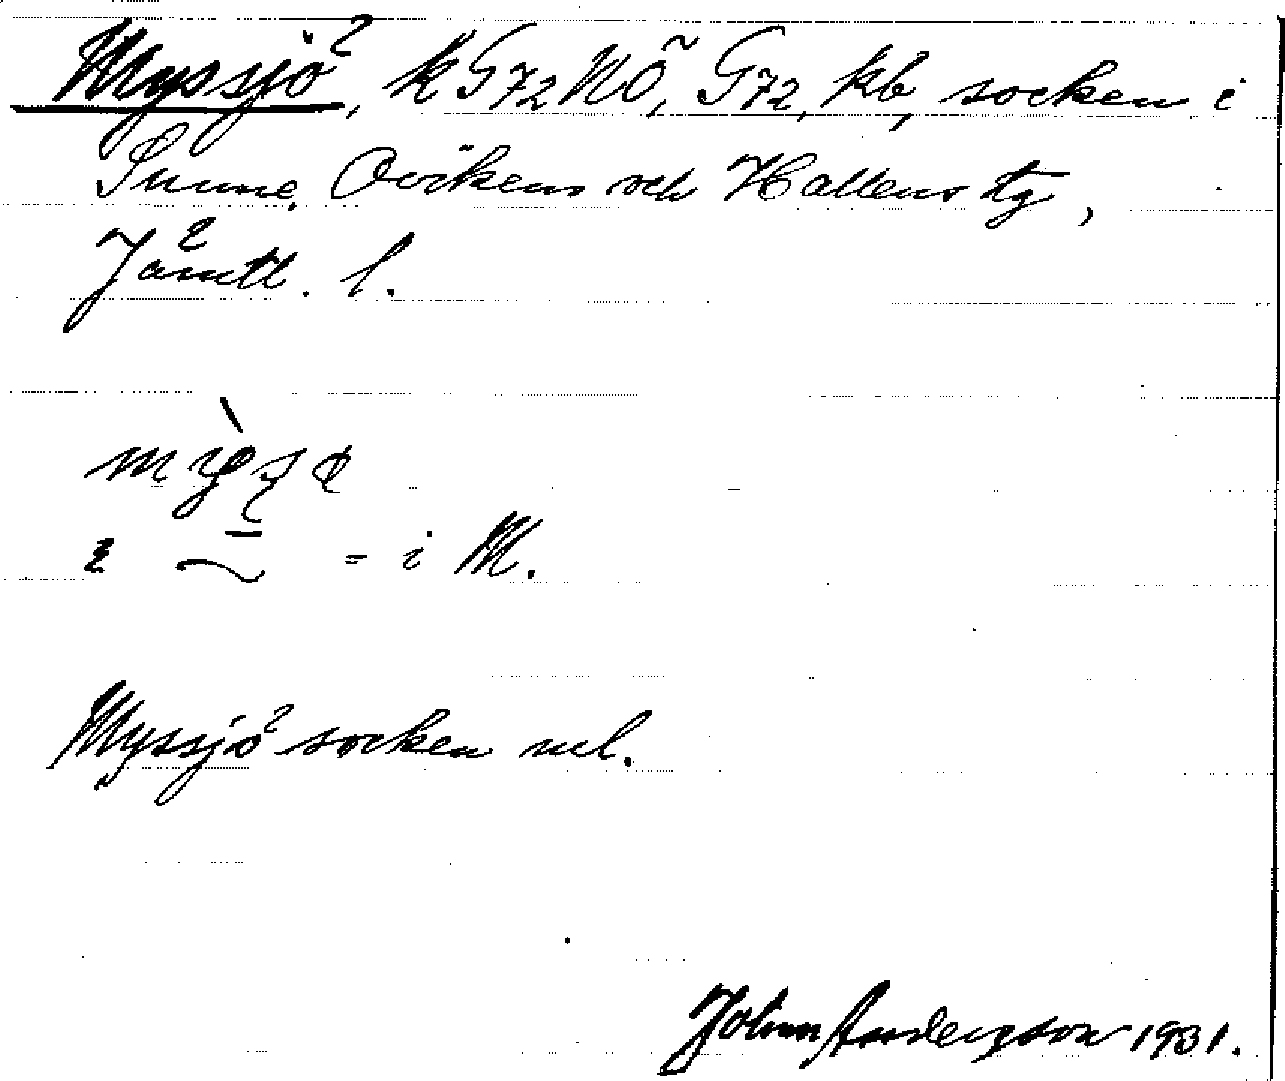 Myssjö, k G72 NÖ, G72, kb, socken i
Sunne, Ovikens och Hallens tg,
Jämtl. l.
i = i M.
Myssjö socken ml.
Johan Andersson 1931.